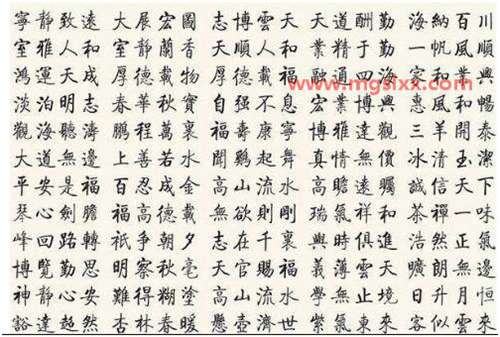 寧靜致遠 大展宏圖 志博雲天 天道酬勤 海納百川
室雅人和 室靜蘭香 天順人和 業精于勤 一帆風順
鴻運天成 厚德載物 厚德載福 融通四海 和業興
淡泊明志 春華秋實 自强不息 宏業博興 惠風和暢
觀海聽濤 鵬程萬裏 福壽康寧 博雅達觀 三羊開泰
大道無邊 上善若水 聞鷄起舞 真情無價 冰清玉潔
平安是福 百忍成金 高山流水 高瞻遠矚 誠信天下
琴心劍膽 福高德載 無欲則剛 瑞氣祥和 茶禪一味
峰回路轉 祇爭朝夕 志在千裏 與時俱進 浩然正氣
博覽勤思 明察秋毫 天官賜福 義薄雲天 曠朗無邊
神靜心安 難得糊塗 高山流水 學無止境 日升月恒
豁達超然 杏林春暖 懸壺濟世 紫氣東來 客似雲來
www.mgslxx.com